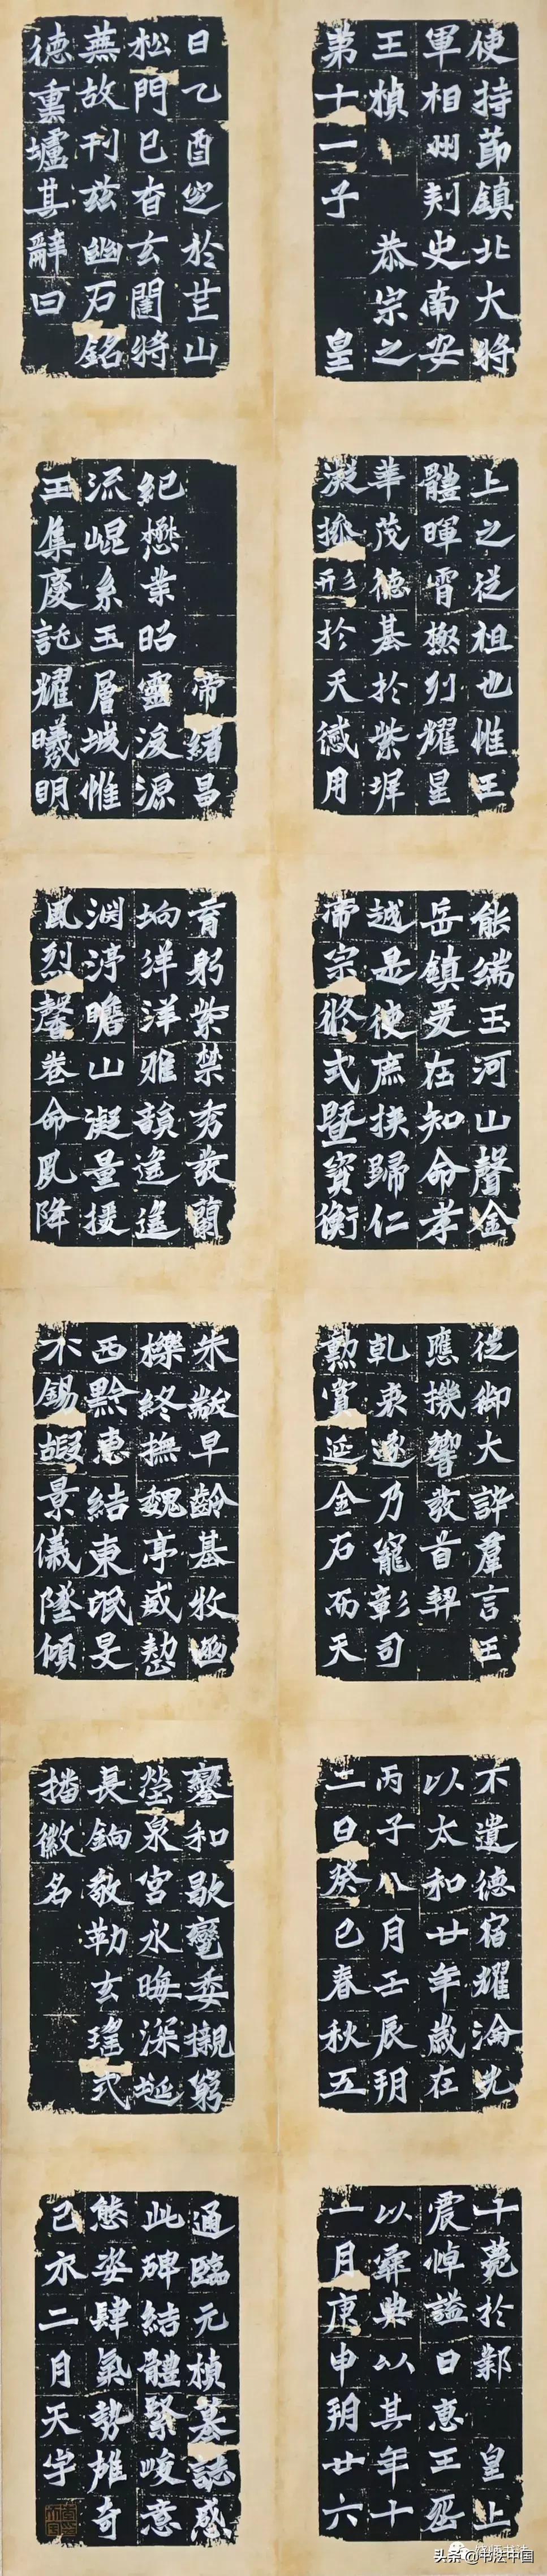 使持節鎮北大將
軍相州刾史南安
王楨 恭宗之
第十一子 皇
上之從祖也惟王
體暉霄極列耀星
華茂德基於紫墀
凝操形於天感用
能端玉河山聲金
岳鎮爰在知命孝
越是使庶族歸仁
帝宗攸式暨寶衡
從御大訊羣言王
應機響發首契
乾衷遂乃寵彰司
勳賞延金石而天
不遺德宿耀淪光
以太和廿年歲在
丙子八月壬辰朔
二日癸巳春秋五
十薨於鄴 皇上
震悼謚曰惠王葬
以彝典以其年十
一月庚申朔廿六
日乙酉窆於芒山
松門已杳玄闥將
蕪故刊茲幽石銘
德熏壚其辭曰
帝緒昌
紀懋業昭靈浚源
流崐系玉層城惟
王集慶託耀曦明
育躬紫禁秀發蘭
坰洋洋雅韻遙遙
淵渟瞻山凝量援
風烈馨卷命夙降
朱黻早齡基牧幽
櫟終撫魏亭威懃
西黔惠結東氓旻
不錫嘏景儀墜傾
鑾和歇轡委櫬窮
塋泉宮永晦深埏
長銄敬勒玄瑤式
播徽名
通臨元楨墓誌感
此碑結體緊峻意
態姿肆氣勢雄奇
己亥二月天宇
头条 @书法中国